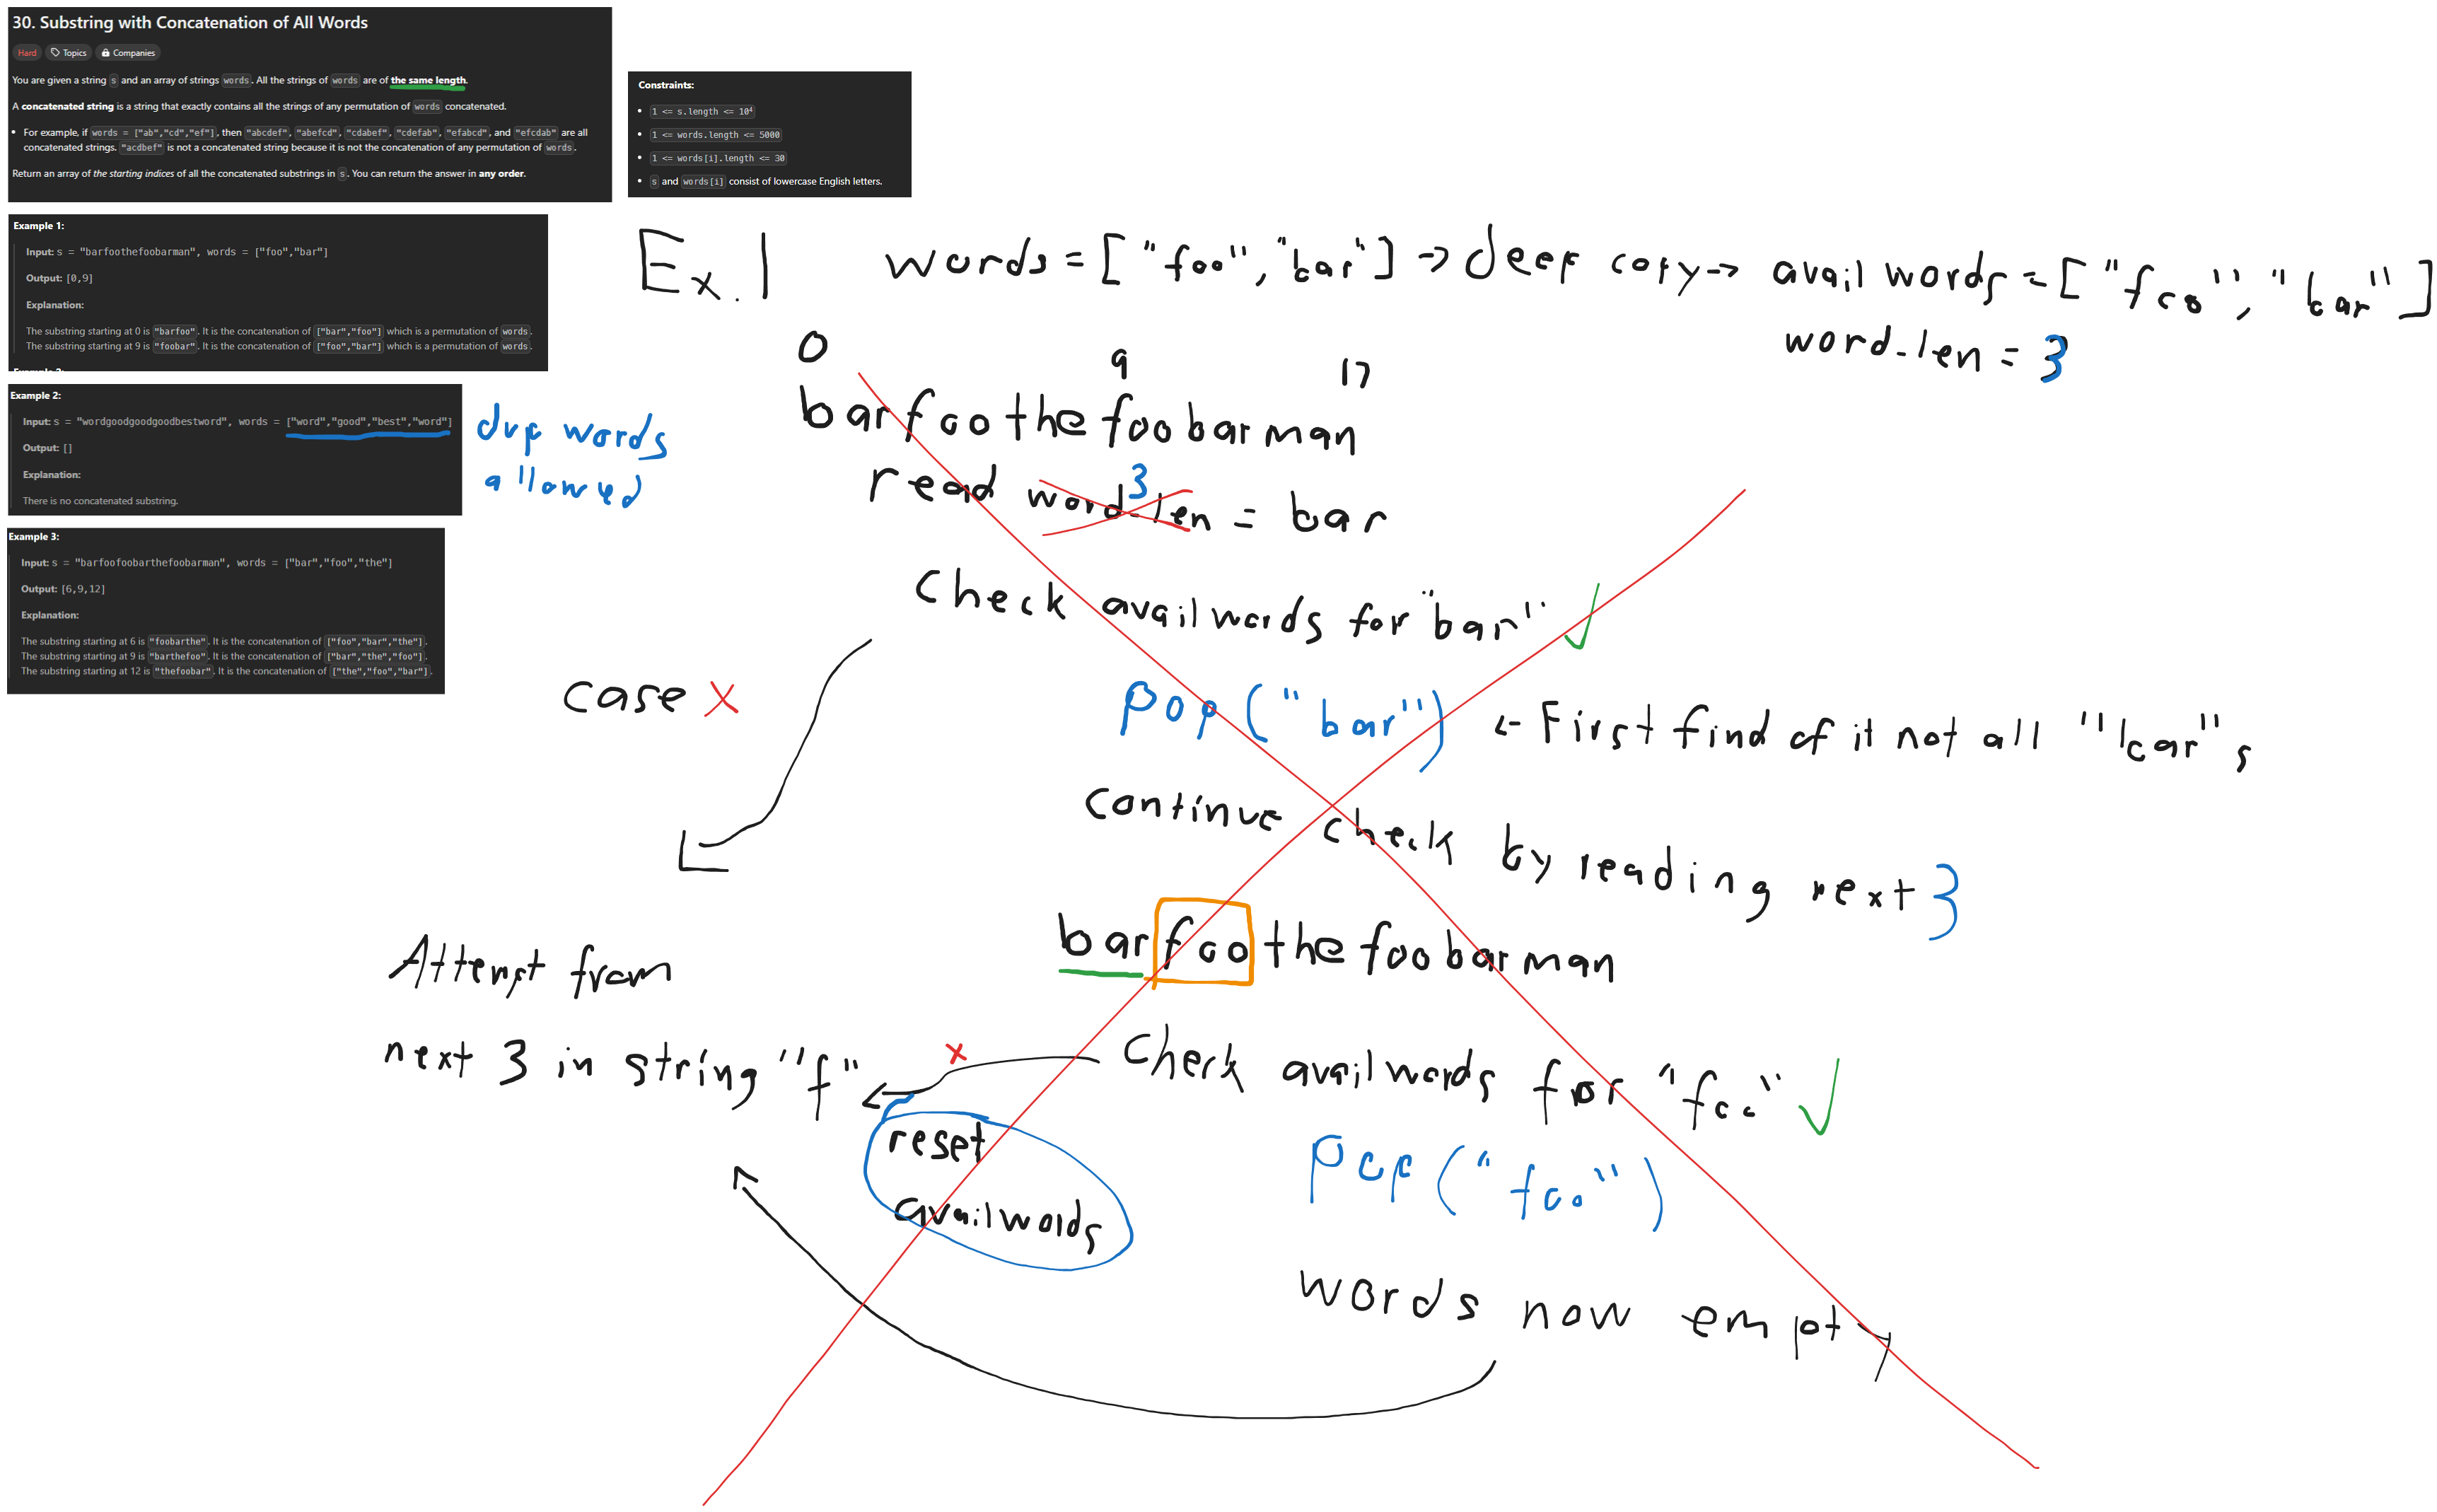 30. Substring with Concatenation of All Words
Hard Topics Companies
You are given a string s and an array of strings words. All the strings of words are of the same length.
A concatenated string is a string that exactly contains all the strings of any permutation of words concatenated.
• For example, if words = ["ab","cd","ef"], then "abcdef", "abefcd", "cdabef", "cdefab", "efabcd", and "efcdab" are all
concatenated strings. "acdbef" is not a concatenated string because it is not the concatenation of any permutation of words.
Return an array of the starting indices of all the concatenated substrings in s. You can return the answer in any order.
Constraints:
• 1 <= s.length <= 10⁴
• 1 <= words.length <= 5000
• 1 <= words[i].length <= 30
• s and words[i] consist of lowercase English letters.
Example 1:
Input: s = "barfoothefoobarman", words = ["foo","bar"]
Output: [0,9]
Explanation:
The substring starting at 0 is "barfoo". It is the concatenation of ["bar","foo"] which is a permutation of words.
The substring starting at 9 is "foobar". It is the concatenation of ["foo","bar"] which is a permutation of words.
Example 2:
Input: s = "wordgoodgoodgoodbestword", words = ["word","good","best","word"]
Output: []
Explanation:
There is no concatenated substring.
dup words
allowed
Example 3:
Input: s = "barfoofoobarthefoobarman", words = ["bar","foo","the"]
Output: [6,9,12]
Explanation:
The substring starting at 6 is "foobarthe". It is the concatenation of ["foo","bar","the"].
The substring starting at 9 is "barthefoo". It is the concatenation of ["bar","the","foo"].
The substring starting at 12 is "thefoobar". It is the concatenation of ["the","foo","bar"].
Ex. 1 words = ["foo","bar"] → deep copy → availwords = ["foo","bar"]
word_len = 3
0 9 17
barfoothefoobarman
3
read word_len = bar
Check availwords for "bar" ✓
case X
pop("bar") ← First find of it not all "bar"s
continue check by reading next 3
barfoothefoobarman
Attempt from
next 3 in string "f"
x
Check availwords for "foo" ✓
reset
availwords
pop("foo")
words now empty